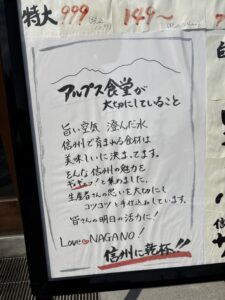 特大 999 149～
アルプス食堂が
大切にしていること
旨い空気 澄んだ水
信州で育まれる食材は
美味しいに決まってます。
そんな信州の魅力を
ギュギュっと集めました。
生産者さんの思いを大切にし
コツコツと手作りしています。
皆さんの明日の活力に！
Love♥NAGANO！
信州に乾杯!!